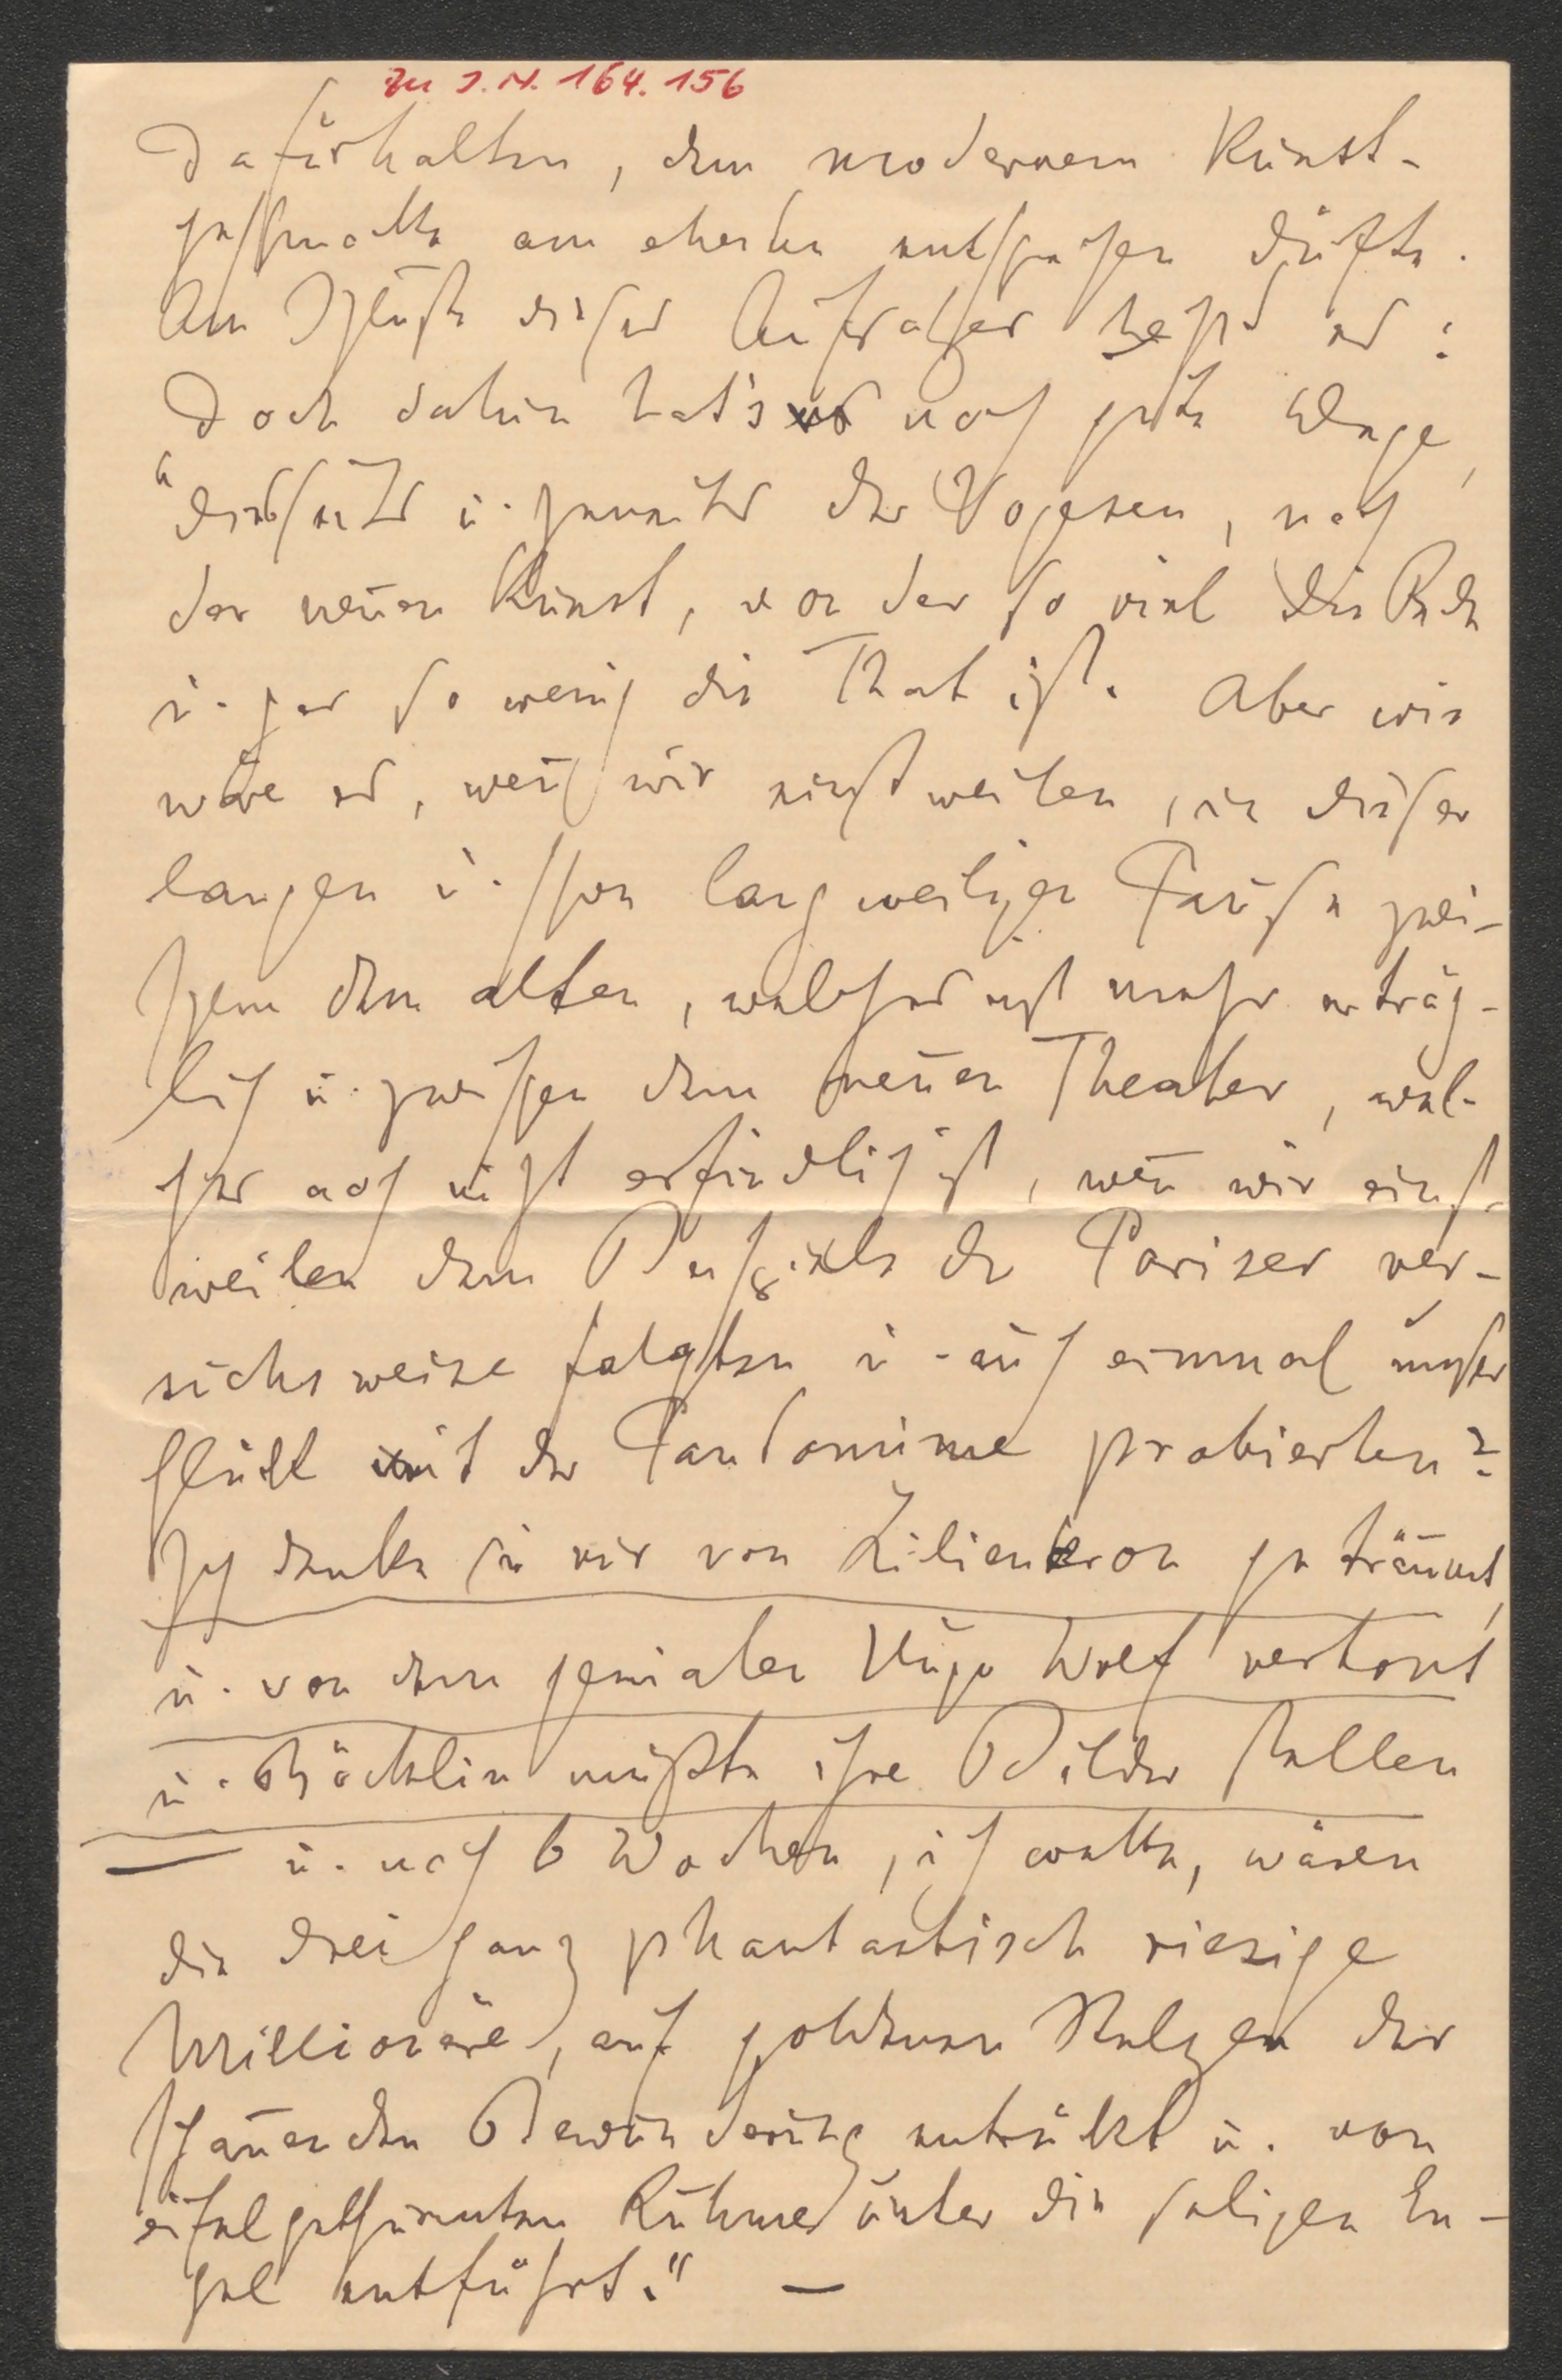 zu I.N. 164.156
Dafürhalten, dem modernem Kunst-
geschmacke am ehesten entsprechen dürfte.
Am Schluße dieses Aufsatzes heißt es:
Doch dahin hat's noch gute Wege,
"diesseits u. jenseits der Vogesen, nach
der neuen Kunst, von der so viel die Rede
u. gar so wenig die That ist. Aber wie
wäre es, wenn wir einstweilen, in dieser
langen u. schon langweiligen Pause zwi-
schen dem alten, welches nicht mehr erträg-
lich u. zwischen dem neuen Theater, wel-
ches noch nicht erfindlich ist, wenn wir einst-
weilen dem Beispiele der Pariser ver-
suchsweise folgten u. auch einmal unser
Glück mit der Pantomime probierten?
Ich denke sie mir von Liliencron geträumt,
u. von dem genialen Hugo Wolf vertont
u. Böcklin müßte ihre Bilder stellen
— u. nach 6 Wochen, ich wette, wären
die drei ganz phantastisch riesige
Millionäre, auf goldenen Stelzen der
schauenden Bewunderung entrückt u. von
eifelgethürmten Ruhmes unter die seligen En-
gel entführt." —